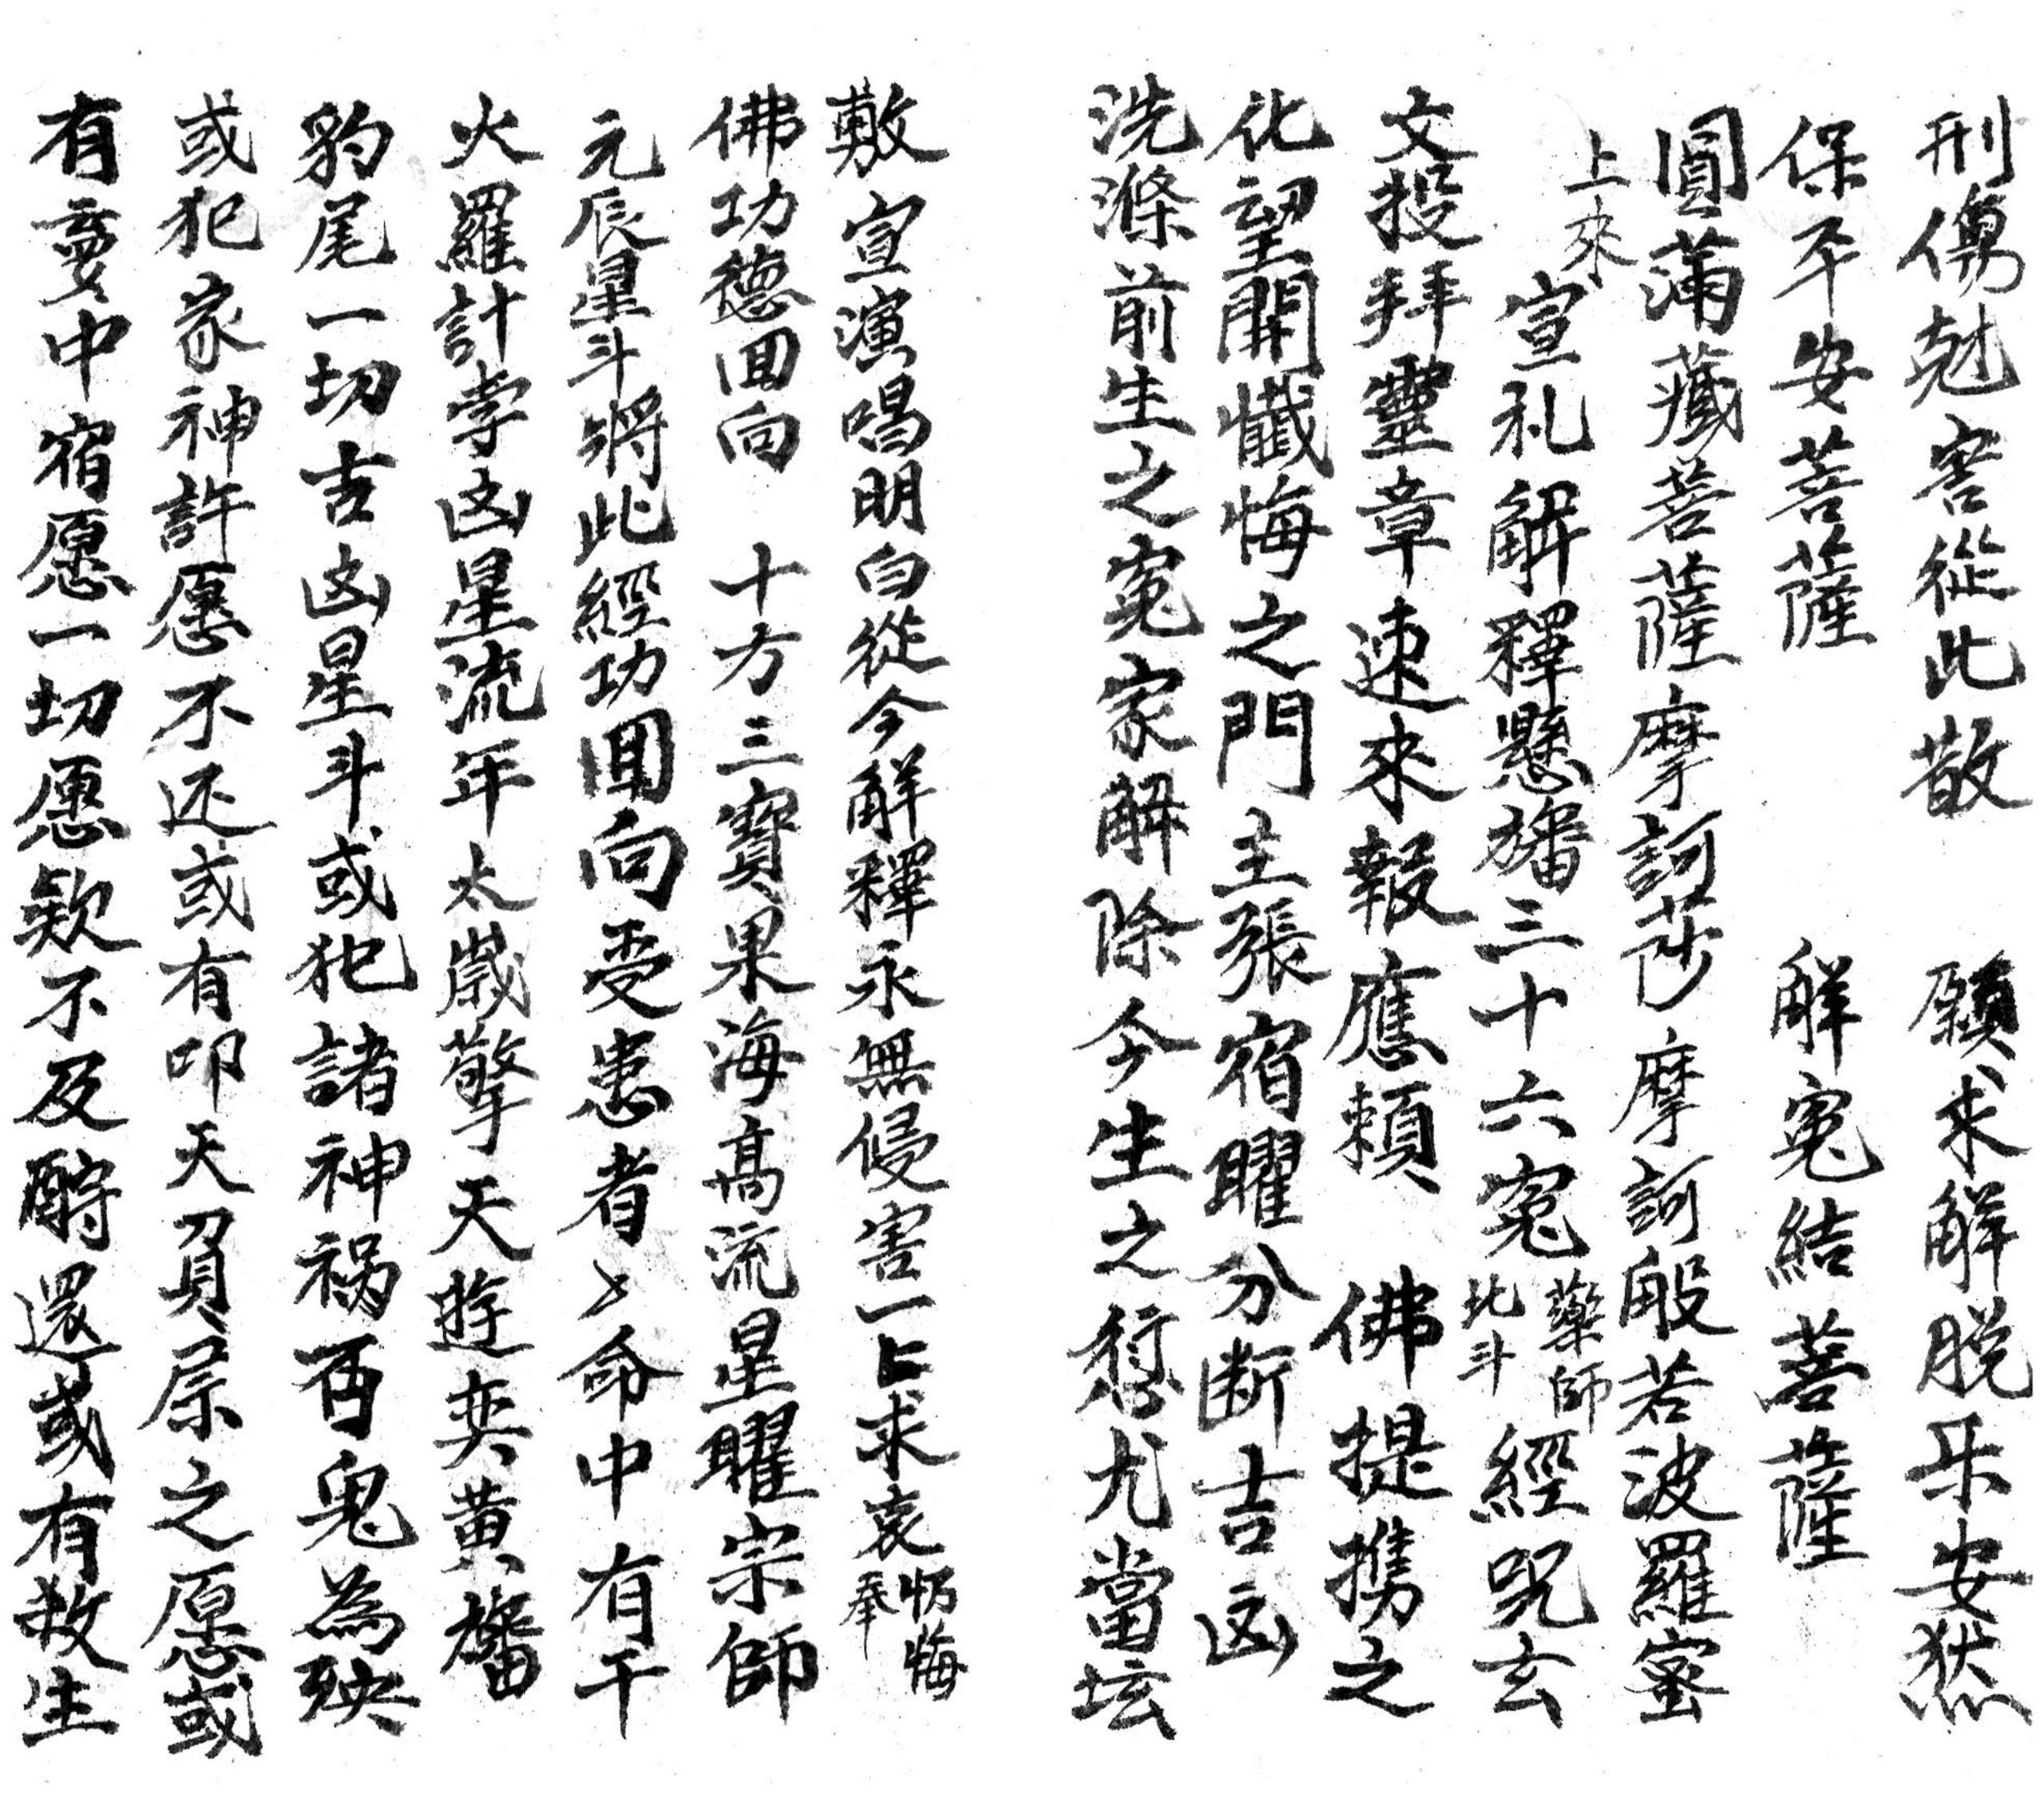 刑傷尅害從此散　願求解脱乐安然
保平安菩薩　解寃結菩薩
圓滿藏菩薩摩訶莎摩訶般若波羅蜜
上來
宣礼解釋懸旛三十六寃藥師北斗經呪玄
文投拜靈章速來報應頼　佛提携之
化望開懺悔之門主張宿曜分断吉凶
洗滌前生之寃家解除今生之愆尤當坛
敷宣演唱明白從今解釋永無侵害一上求哀忏悔奉
佛功德回向　十方三寶果海髙流星曜宗師
元辰星斗將此經功回向受患者〻命中有干
火羅計孛凶星流年太歲擎天遊奕黄旛
豹尾一切吉凶星斗或犯諸神祸百鬼為殃
或犯家神許愿不还或有叩天負屈之愿或
有夢中宿愿一切愿欵不及酧還或有救生